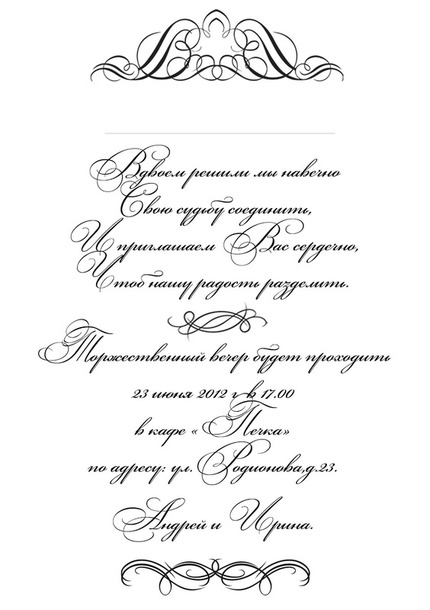 Вдвоем решили мы навечно
Свою судьбу соединить,
И приглашаем Вас сердечно,
Чтоб нашу радость разделить.
Торжественный вечер будет проходить
23 июня 2012 г в 17.00
в кафе « Печка»
по адресу: ул. Родионова,д.23.
Андрей и Ирина.